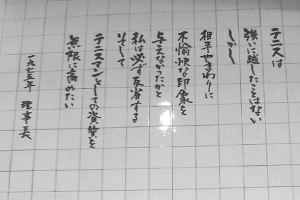 テニスは
強いに越したことはない
しかし
相手やまわりに
不愉快な印象を
与えなかったかと
私は必ず反省する
そして
テニスマンとしての資質を
無限に高めたい
一九七五年 理事長